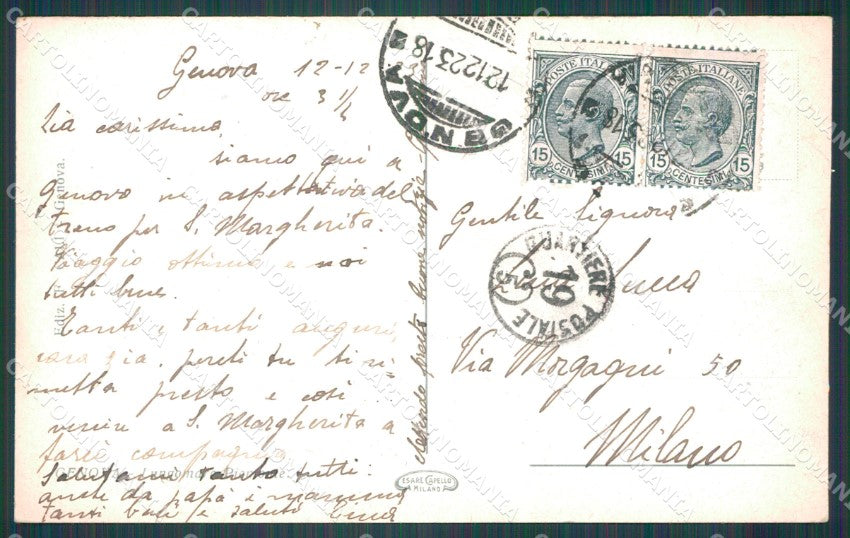 Genova 12-12
ore 3 1/4
Zia carissima,
siamo qui a
Genova in aspettativa del
treno per S. Margherita.
Viaggio ottimo e noi
tutti bene.
Tanti e tanti auguri,
cara zia, perchè tu ti ri
metta presto e così
venire a S. Margherita a
farci compagnia.
Salutami tanto tutti
anche da papà e mamma
tanti baci e saluti
attendo presto buone notizie
GENOVA
12 12 23 18
POSTE ITALIANE
15 CENTESIMI 15
POSTE ITALIANE
15 CENTESIMI 15
QUARTIERE POSTALE
19
Gentile Signora
Lucca
Via Morgagni 50
Milano
Ediz.
Genova.
GENOVA
CESARE CAPELLO
MILANO
CARTOLINOMANIA